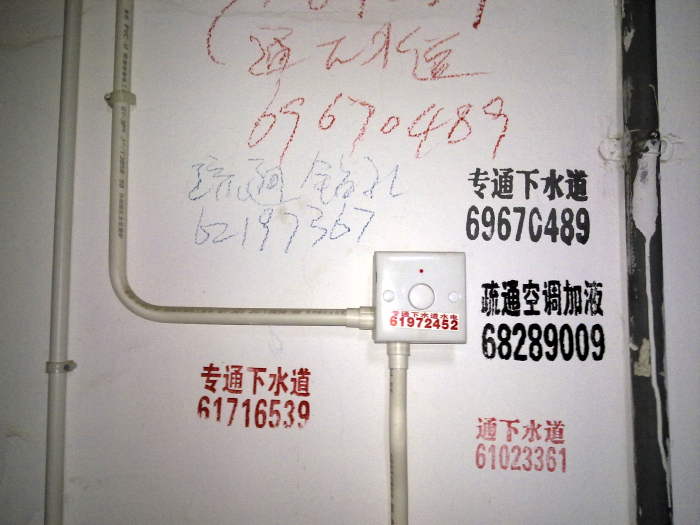 通下水道
69670489
疏通 钻孔
62197367
专通下水道
69670489
疏通空调加液
68289009
专通下水道水电
61972452
专通下水道
61716539
通下水道
61023361